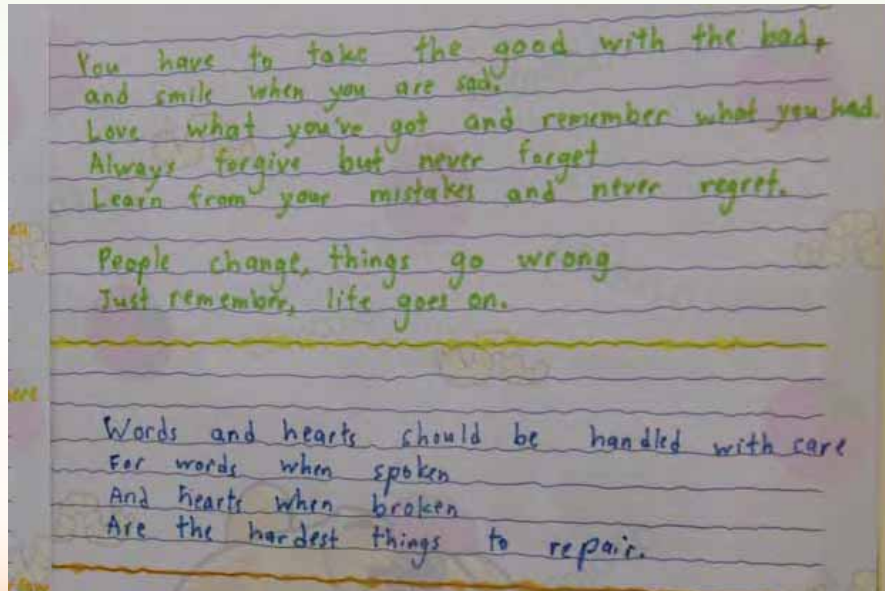 You have to take the good with the bad,
and smile when you are sad.
Love what you've got and remember what you had.
Always forgive but never forget
Learn from your mistakes and never regret.
People change, things go wrong
Just remember, life goes on.
Words and hearts should be handled with care
For words when spoken
And hearts when broken
Are the hardest things to repair.